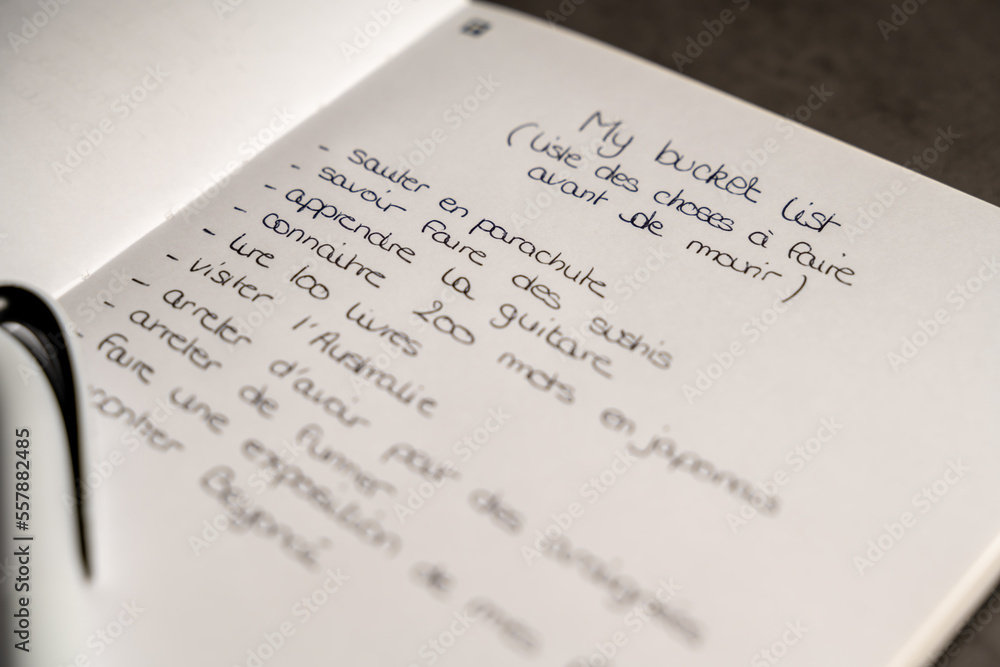 My bucket list
(liste des choses à faire
avant de mourir)
- sauter en parachute
- savoir faire des sushis
- apprendre la guitare
- connaitre 200 mots en japonais
- lire 100 livres
- visiter l'Australie
- arreter d'avoir peur des araignées
- arreter de fumer
- faire une exposition de mes
Beyoncé
Adobe Stock | #557882485